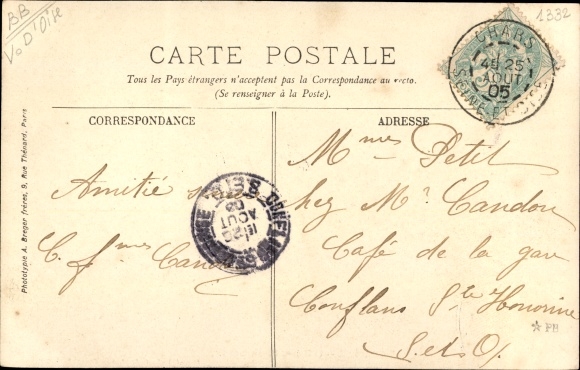 BB
V. D'Oise
1332
CHARS
4E 25
AOUT
05
SEINE-ET-OISE
CARTE POSTALE
Tous les Pays étrangers n'acceptent pas la Correspondance au recto.
(Se renseigner à la Poste).
CORRESPONDANCE
ADRESSE
Phototypie A. Breger frères, 9, Rue Thénard, Paris
Amitié
C. f. mes
AOUT
Mmes Petit
chez Mr Candou
Café de la gare
Conflans Ste Honorine
S. et O.
* PH